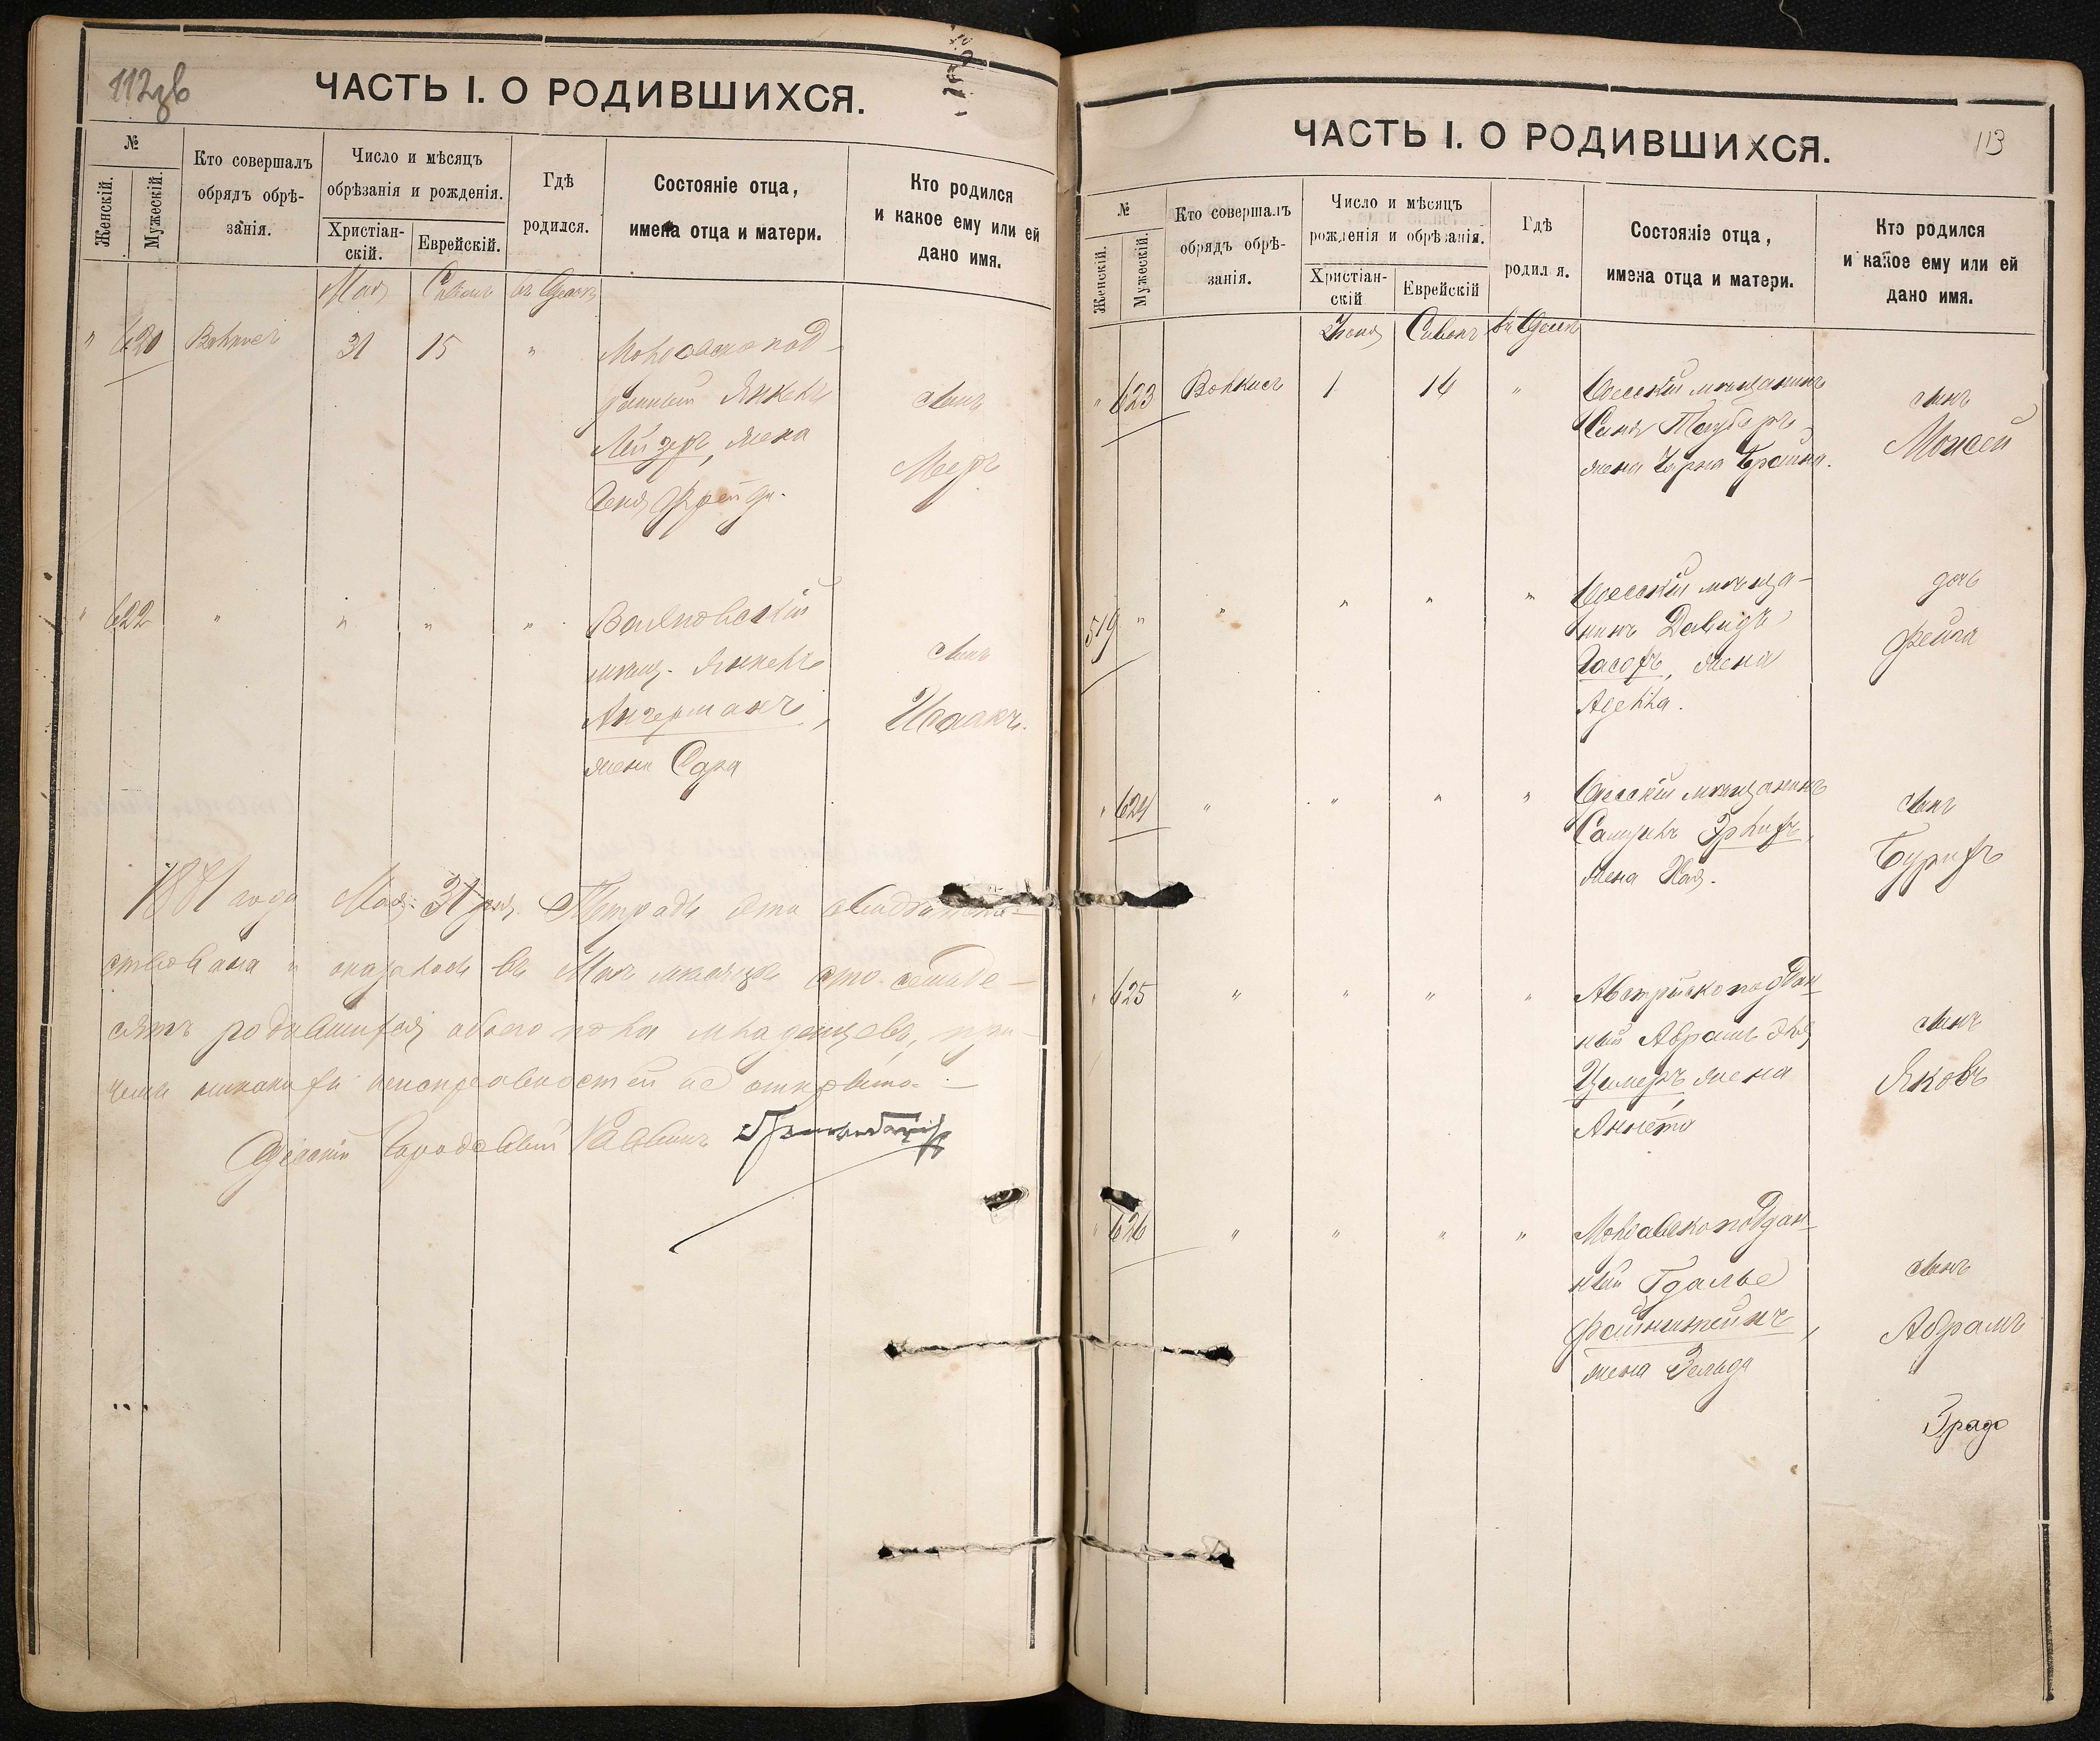 112 об
ЧАСТЬ I. О РОДИВШИХСЯ.
№
Женскій.
Мужескій.
Кто совершалъ
обрядъ обрѣ-
занія.
Число и мѣсяцъ
обрѣзанія и рожденія.
Христіан-
скій.
Еврейскій.
Гдѣ
родился.
Состояніе отца,
имена отца и матери.
Кто родился
и какое ему или ей
дано имя.
Мая Сивонъ въ Одессѣ
" 31 15 " Молдавскопод-
данный Янкель
Лейзеръ, жена
Геня Фрейда.
сынъ
Меръ
" 622 " " " "
мѣщ. Янкель
Ангерманъ,
жена Сара
сынъ
Исаакъ.
1881 года Мая 31 дня. Тетрадь эта свидѣтель-
ствована и оказалось въ Маѣ мѣсяцѣ сто семьде-
сятъ родившихся обоего пола младенцевъ, при
чемъ никакихъ неисправностей не открыто.
Одесскій Городовой Раввинъ
ЧАСТЬ I. О РОДИВШИХСЯ.
113
№
Женскій.
Мужескій.
Кто совершалъ
обрядъ обрѣ-
занія.
Число и мѣсяцъ
рожденія и обрѣзанія.
Христіан-
скій
Еврейскій
Гдѣ
родился.
Состояніе отца,
имена отца и матери.
Кто родился
и какое ему или ей
дано имя.
Іюня Сивонъ въ Одессѣ
" 623 1 "
Одесскій мѣщанинъ
Тауберъ
жена
сынъ
Моисей
519 " " " " "
Одесскій мѣща-
нинъ Давидъ
жена
дочь
Фейга
" 624 " " " "
Одесскій мѣщанинъ
жена Хая.
сынъ
" 625 " " " "
Австрійскоподдан-
ный Абрамъ
Цимеръ жена
Аннета
сынъ
Яковъ
" 626 " " " "
Молдавскоподдан-
ный Гдалье
Файнштейнъ,
жена Зельда
сынъ
Абрамъ